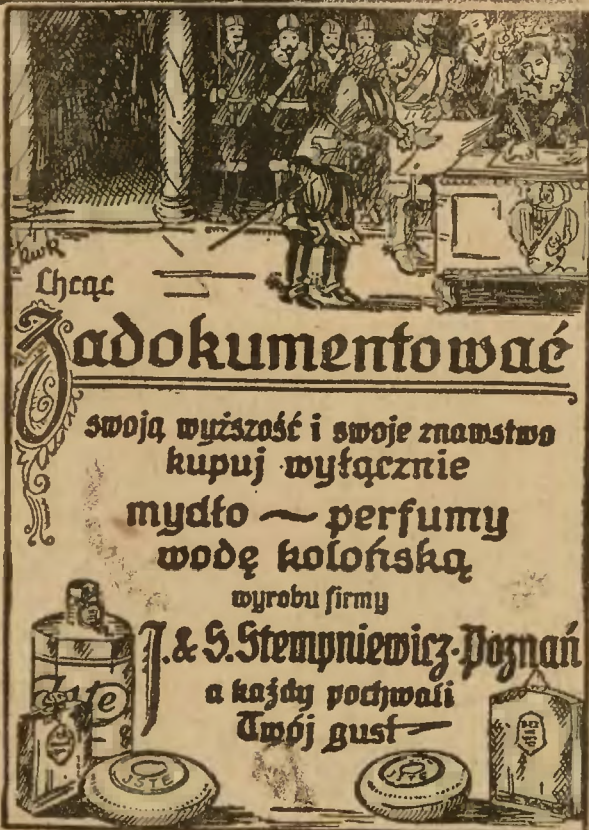 kwk
Chcąc
Zadokumentować
swoją wyższość i swoje znawstwo
kupuj wyłącznie
mydło ~ perfumy
wodę kolońską
wyrobu firmy
J. & S. Stempniewicz-Poznań
a każdy pochwali
Twój gust
Jste
JSTE
JSTE